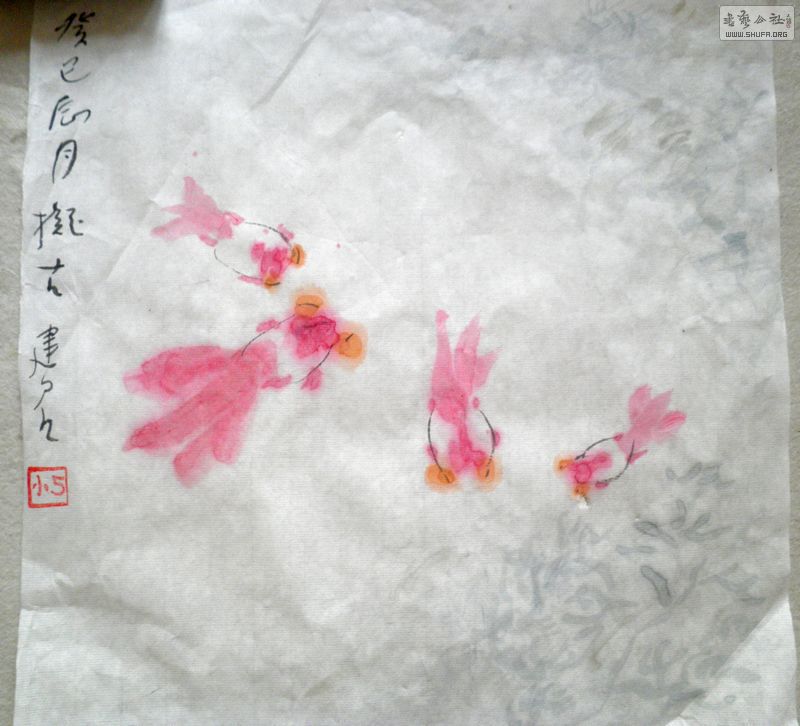 癸巳辰月擬古建
小5
書藝公社
WWW.SHUFA.ORG